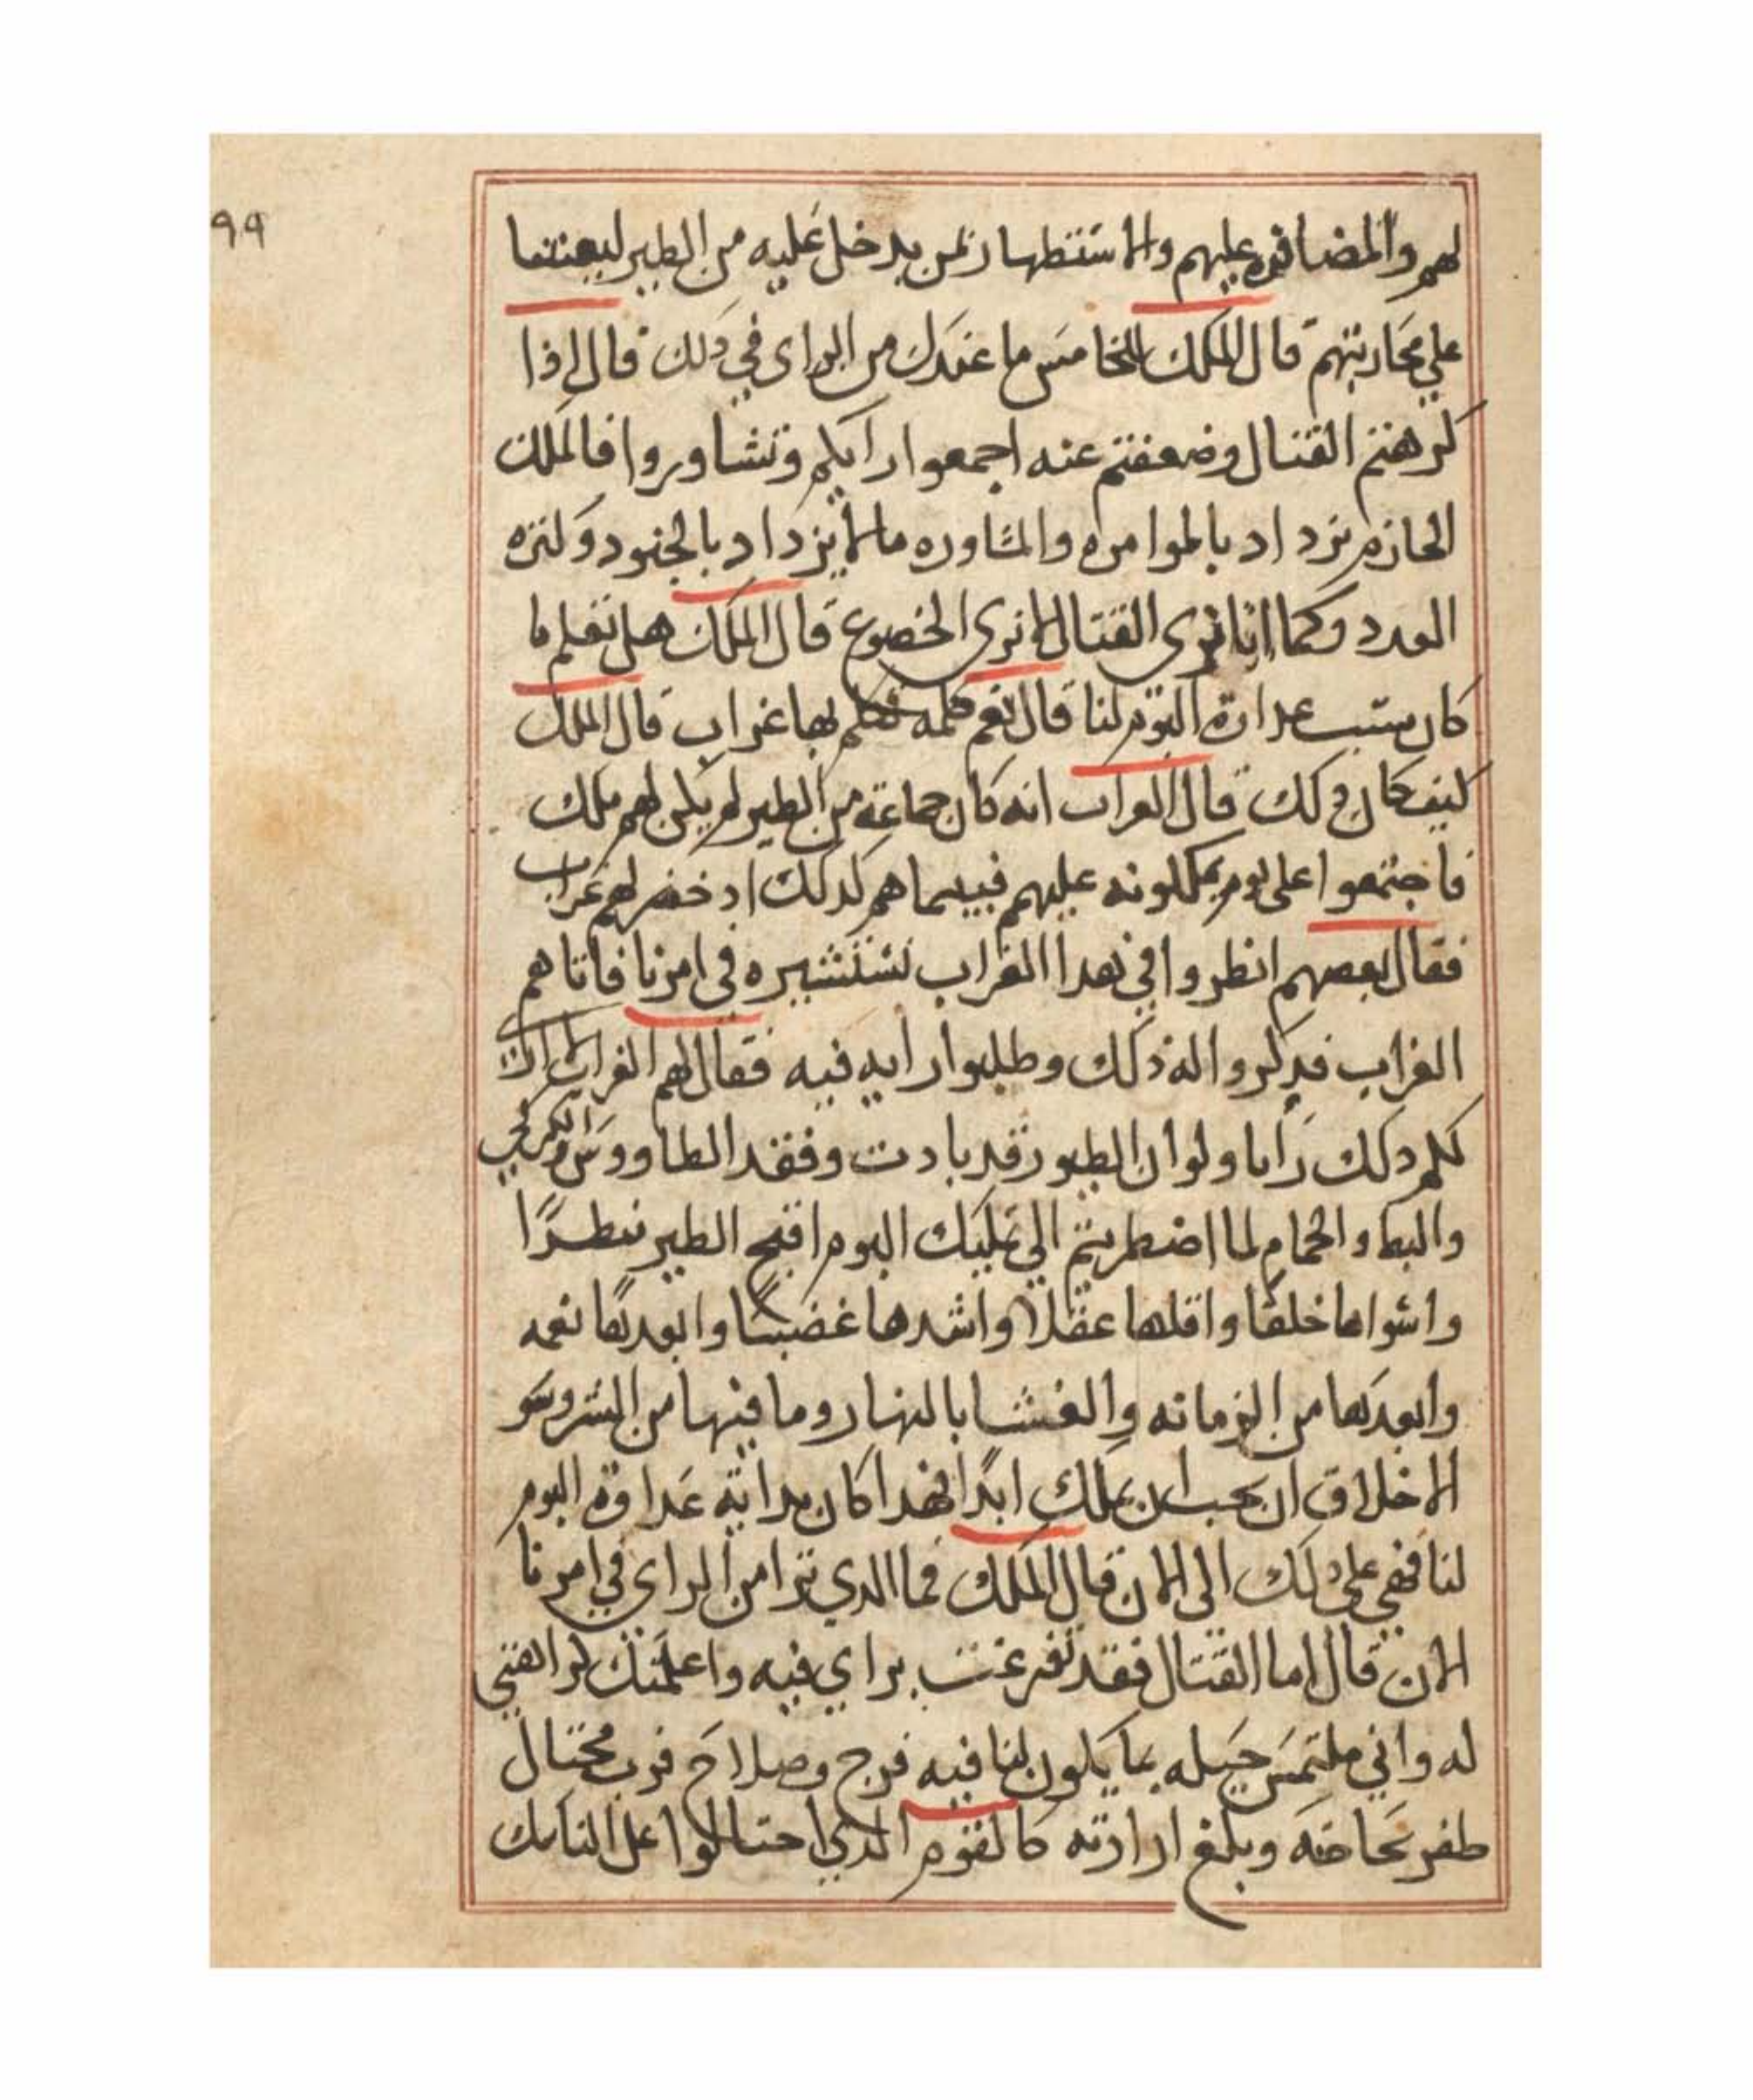 ٩٩
لهم والمضافه عليهم والاستظهار بمن يدخل عليه من الطير ليعيننا
علي محاربتهم قال الملك للخامس ما عندك من الراي في ذلك قال اذا
كرهتم القتال وضعفتم عنه اجمعوا رايكم وتشاوروا فالملك
الحازم يزداد بالموامره والمشاوره ما لا يزداد بالجنود وكثره
العدد وكما انا نري القتال لا نري الخضوع قال الملك هل تعلم ما
كان سبب عداوة البوم لنا قال نعم كلمه تكلم بها غراب قال الملك
كيف كان ذلك قال الغراب انه كان جماعة من الطير لم يكن لهم ملك
فاجتمعوا على بوم يملكونه عليهم فبينما هم كدلك اد حضر لهم غراب
فقال بعضهم انظروا في هدا الغراب نستشيره في امرنا فاتاهم
الغراب فدكروا له ذلك وطلبوا رايه فيه فقال لهم الغراب لا ارا
لكم دلك رايا ولو ان الطيور قد بادت وفقد الطاووس والكركي
والبط والحمام لما اضطريتم الي تمليك البوم اقبح الطير منظرًا
واشواها خلقا واقلها عقلا واشدها غضبًا وابعدها نعمه
وابعدها من الزمانه والغشا بالنهار وما فيها من الشر وسو
الاخلاق ان يجب ان يملك ابدًا فهدا كان بداية عداوة البوم
لنا فهي على دلك الى الان قال الملك فما الدي ترا من الراي في امرنا
الان قال اما القتال فقد تفرغت براي فيه واعلمتك كراهتي
له واني ملتمس حيله بما يكون لنا فيه فرج وصلاح فرب محتال
ظفر بحاجته وبلغ ارادته كالقوم الدي احتالوا على الناسك